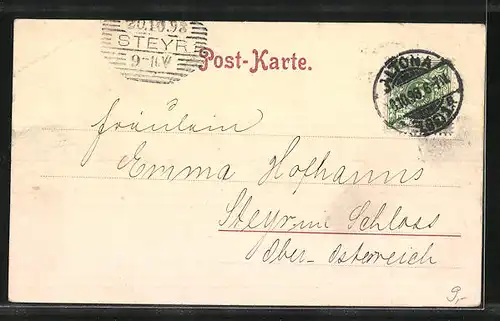 20.10.98
STEYR
9-11.V
Post-Karte.
ALTONA
Fräulein
Emma Hofhanns
Steyr Schloss
Ober-Österreich
9,-